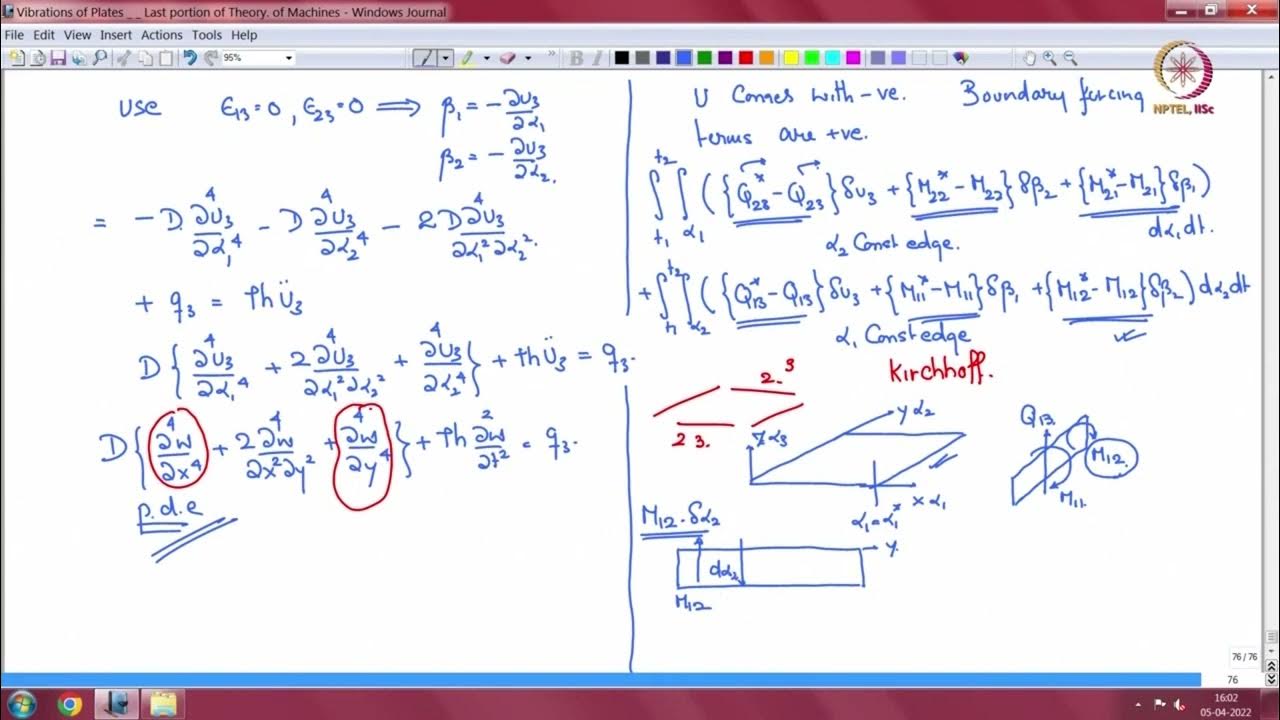 Vibrations of Plates _ _ Last portion of Theory. of Machines - Windows Journal
File Edit View Insert Actions Tools Help
95%
NPTEL, IISc
Use ϵ13=0, ϵ23=0 ⟹ β1 = -∂U3/∂α1
β2 = -∂U3/∂α2.
= -D ∂⁴U3/∂α1⁴ - D ∂⁴U3/∂α2⁴ - 2D ∂⁴U3/∂α1²∂α2².
+ q3 = ρh Ü3
D { ∂⁴U3/∂α1⁴ + 2∂⁴U3/∂α1²∂α2² + ∂⁴U3/∂α2⁴ } + ρh Ü3 = q3.
D { ∂⁴w/∂x⁴ + 2∂⁴w/∂x²∂y² + ∂⁴w/∂y⁴ } + ρh ∂²w/∂t² = q3.
p.d.e
U Comes with -ve. Boundary forcing
terms are +ve.
∫t1^t2 ∫α1 ( {Q23* - Q23} δu3 + {M22* - M22} δβ2 + {M21* - M21} δβ1 )
dα1dt.
α2 Const edge.
+ ∫t1^t2 ∫α2 ( {Q13* - Q13} δu3 + {M11* - M11} δβ1 + {M12* - M12} δβ2 ) dα2dt
α1 Const edge
Kirchhoff.
2. 3
2 3.
y α2
z α3
x α1
α1 = α1*
Q13
M12.
M11.
M12 · δα2
y.
dα2
M12
76 / 76
76
16:02
05-04-2022